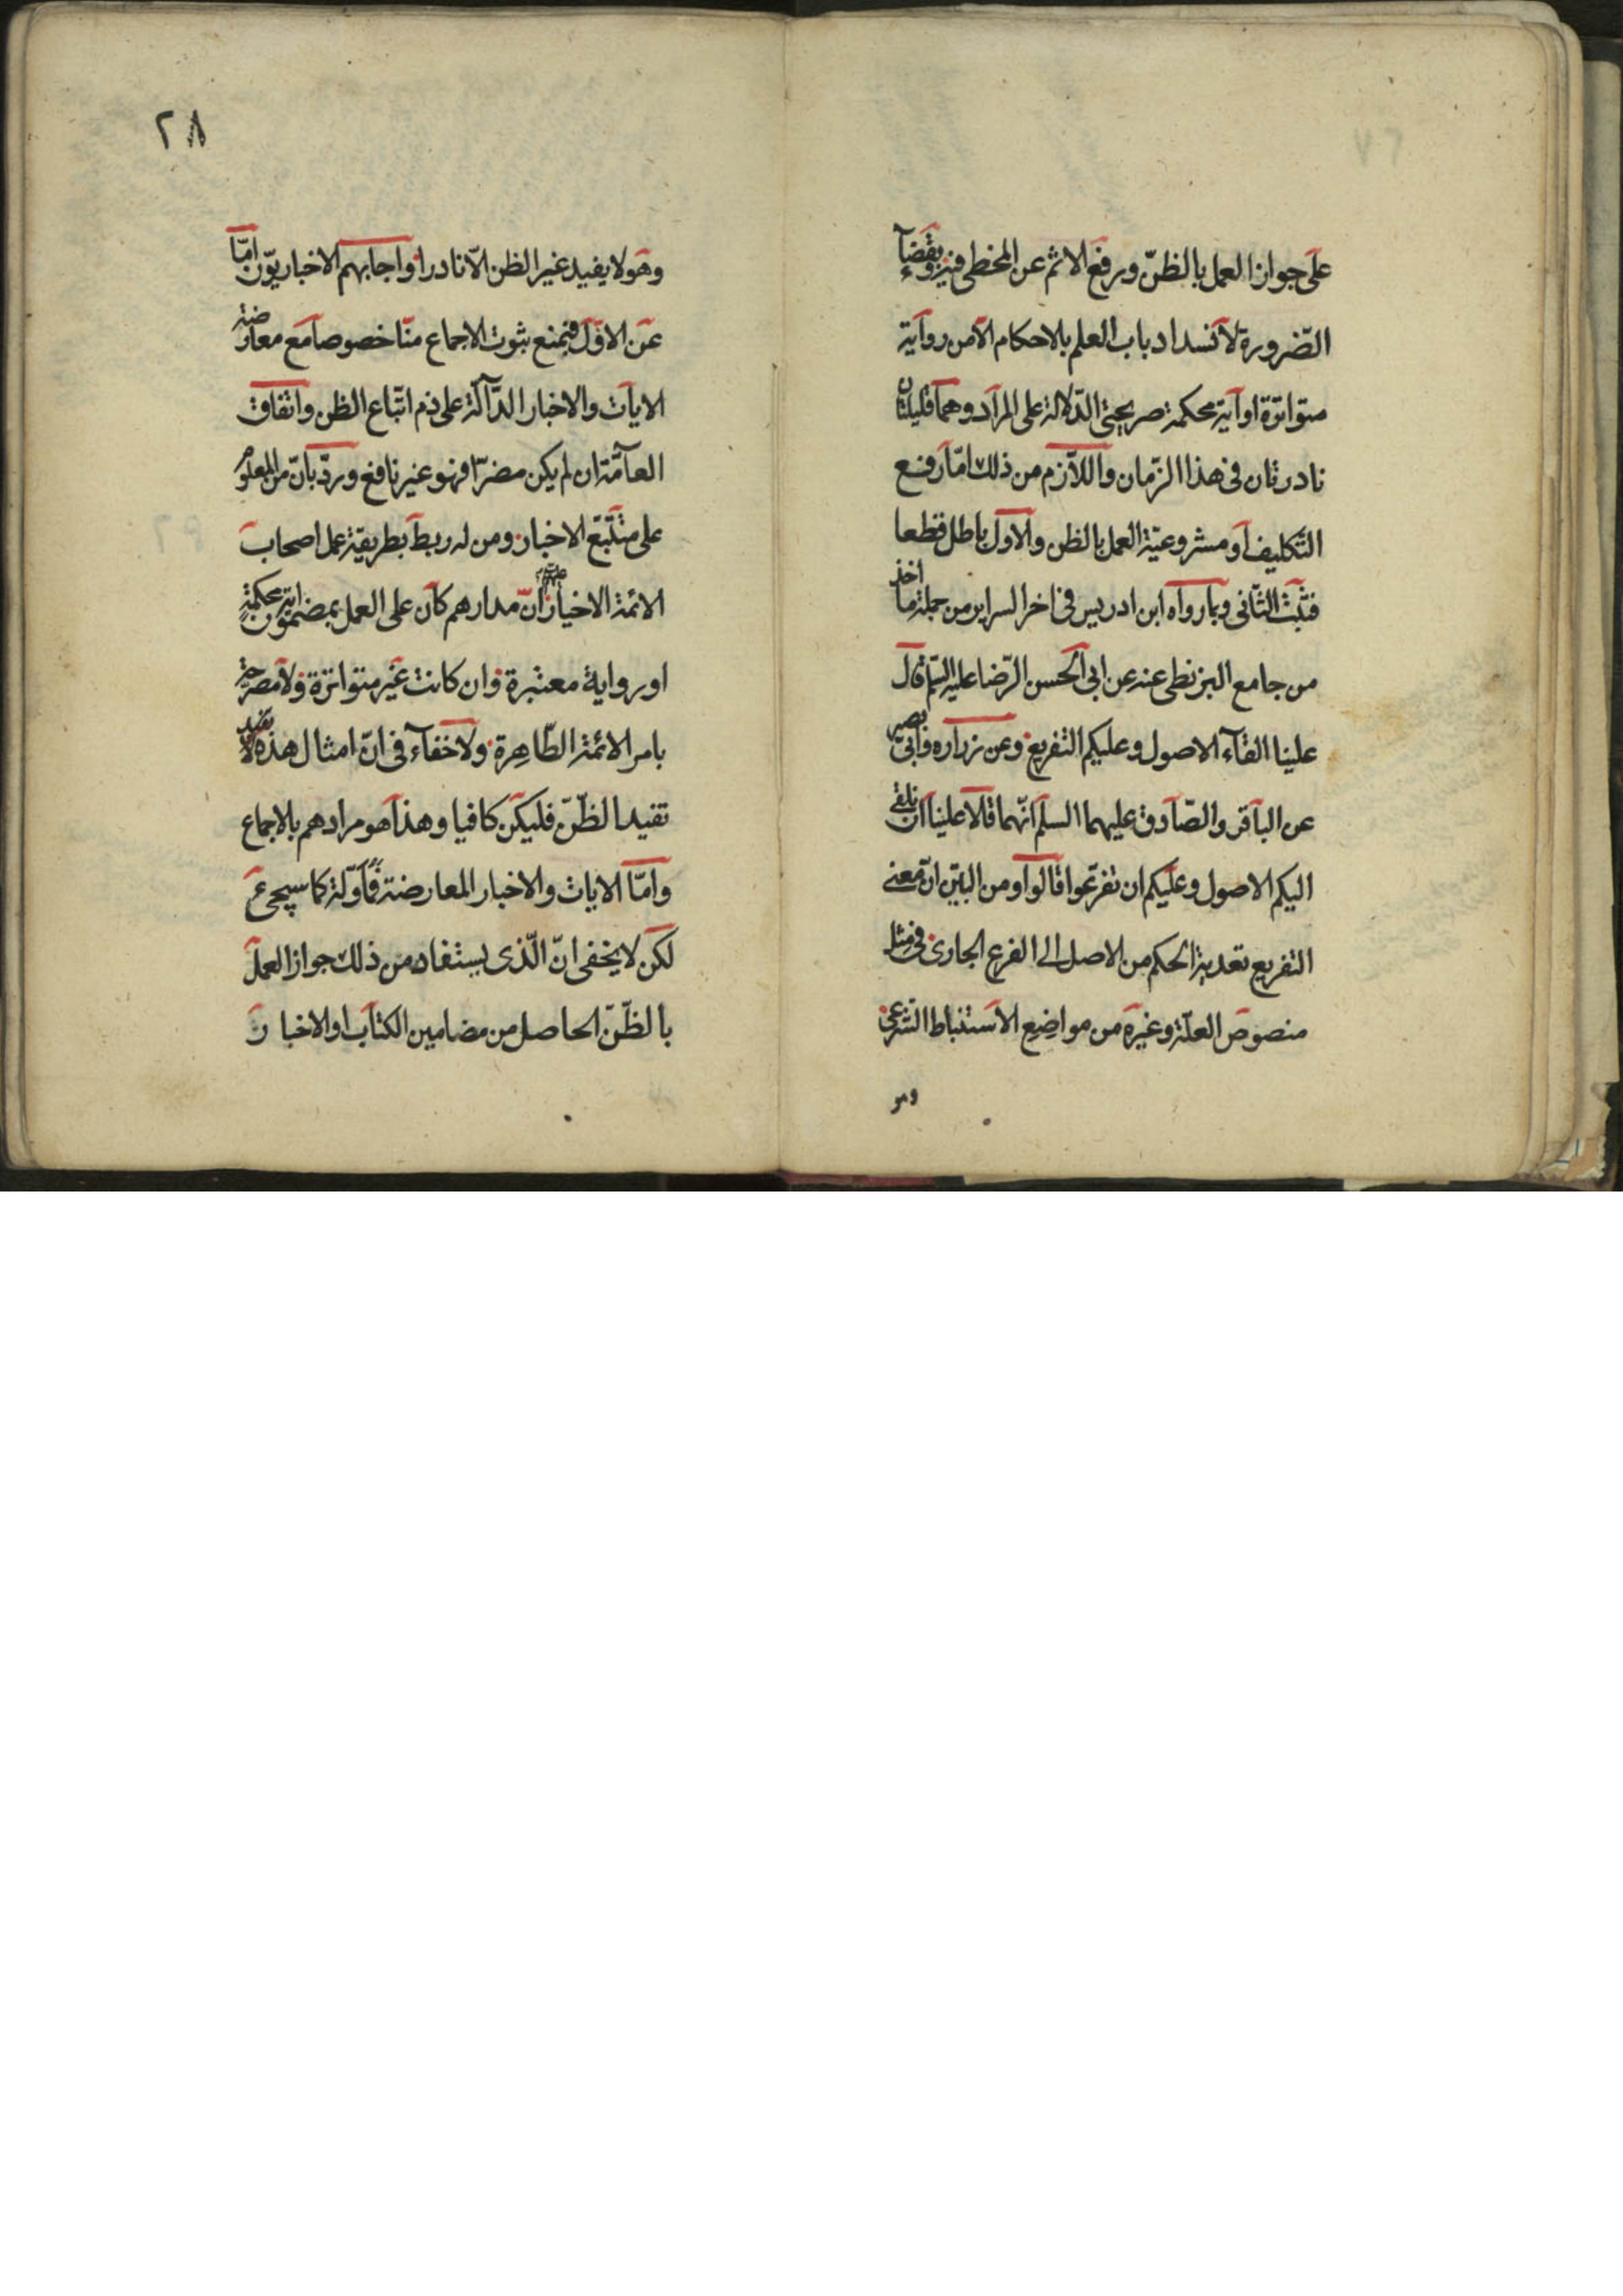 على جواز العمل بالظنّ ورفع الاثم عن المخطى فيه وبقضآء
الضّرورة لانسداد باب العلم بالاحكام الا من رواية
متواترة او آية محكمة صريحتى الدّلالة على المراد وهما قليلتان
نادرتان فى هذا الزّمان واللّازم من ذلك امّا رفع
التّكليف او مشروعيّة العمل بالظن والاول باطل قطعا
فثبت الثّانى وبما رواه ابن ادريس فى اخر السراير من جملة ما اخذ
من جامع البزنطى عنه عن ابى الحسن الرّضا عليه السّلم قال
علينا القآء الاصول وعليكم التفريع وعن زراره وابى بصير
عن الباقر والصّادق عليهما السلم انّهما قالا علينا ان نلقى
اليكم الاصول وعليكم ان تفرّعوا قالوا ومن البيّن انّ معنى
التفريع تعدية الحكم من الاصل الى الفرع الجارى فى مثل
منصوص العلّة وغيره من مواضع الاستنباط الشّرعى
وهو
٢٨
وهو لا يفيد غير الظن الّا نادرا واجابهم الاخباريّون امّا
عن الاوّل فبمنع ثبوت الاجماع منّا خصوصا مع معارضة
الايات والاخبار الدّآلّة على ذم اتّباع الظن واتفاق
العآمّة ان لم يكن مضرّا فهو غير نافع وردّ بانّ من المعلوم
على متتبّع الاخبار ومن له ربط بطريقة عمل اصحاب
الائمة الاخيار انّ مدارهم كان على العمل بمضمون اية محكمة
او رواية معتبرة وان كانت غير متواترة ولا مصرّحة
بامر الائمة الطّاهرة ولا خفآء فى انّ امثال هذه لا يفيد
تفيد الظّنّ فليكن كافيا وهذا هو مرادهم بالاجماع
وامّا الايات والاخبار المعارضة فمأوّلة كما سيجىء
لكن لا يخفى انّ الّذى يستفاد من ذلك جواز العمل
بالظّنّ الحاصل من مضامين الكتاب او الاخبار